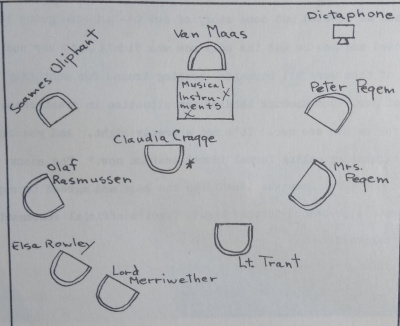 Dictaphone
Van Maas
Soames Oliphant
Musical
Instru-
ments
Peter Pegem
Claudia Cragge
Olaf
Rasmussen
Mrs.
Pegem
Elsa Rowley
Lord
Merriwether
Lt Trant